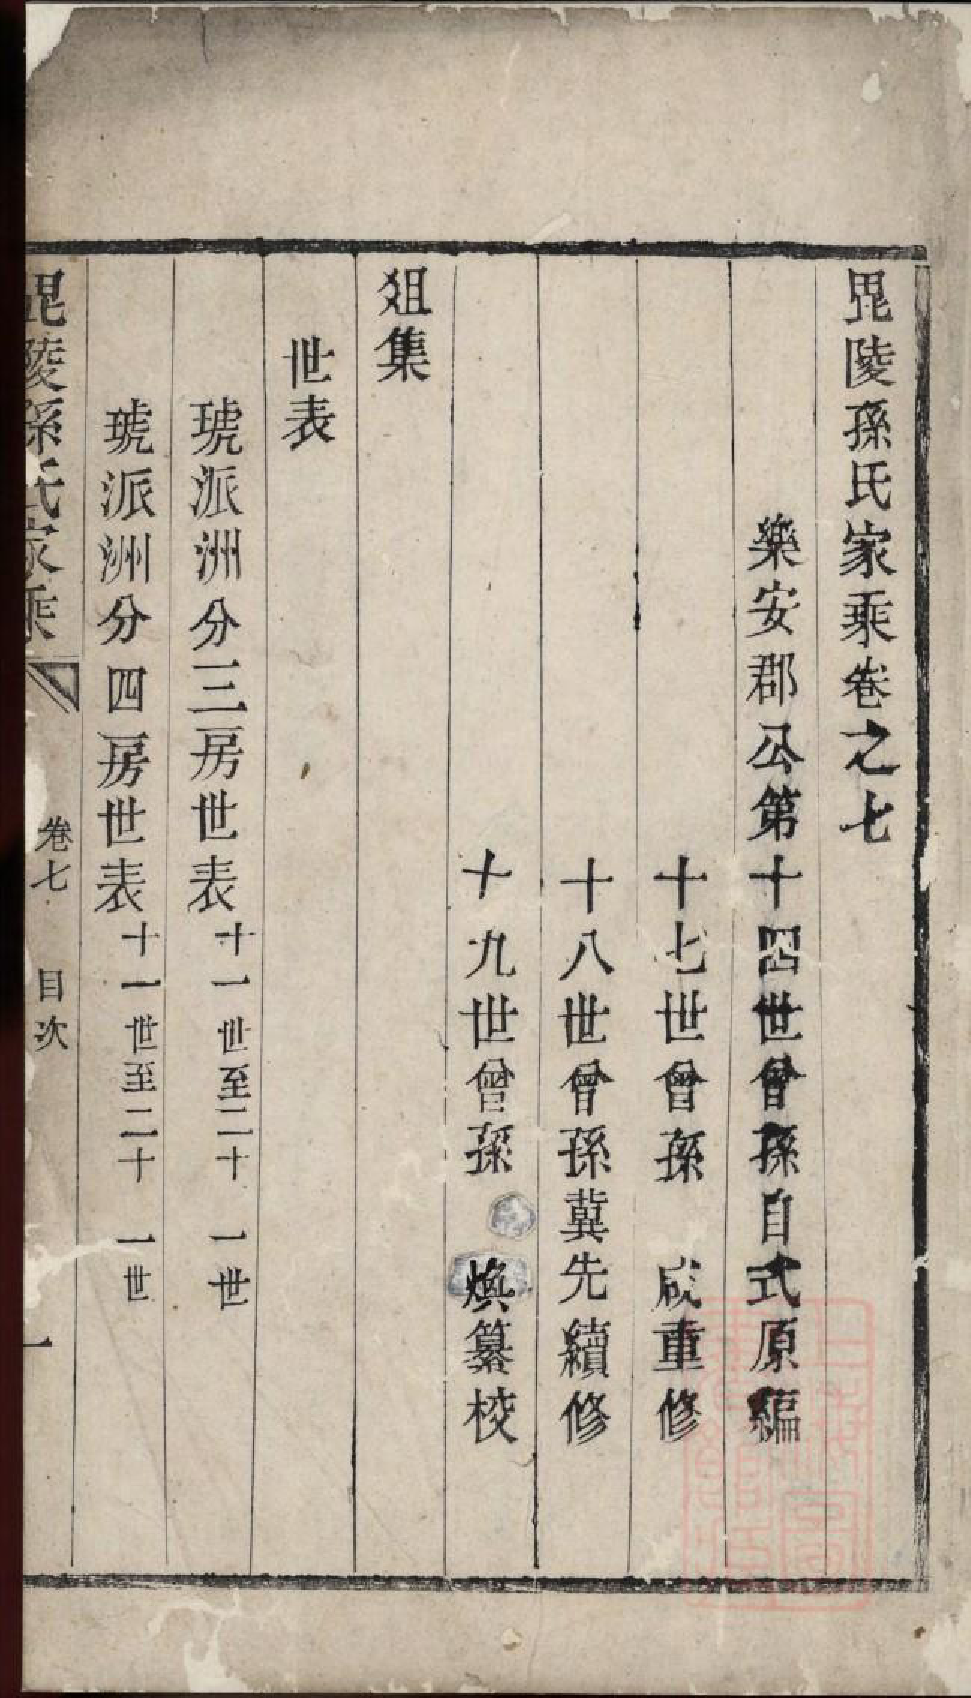 毘陵孫氏家乘卷之七
樂安郡公第十四世曾孫自式原編
十七世曾孫 咸重修
十八世曾孫冀先續修
十九世曾孫 煥纂校
俎集
世表
琥派洲分三房世表十一世至二十一世
琥派洲分四房世表十一世至二十一世
毘陵孫氏家乘 卷七 目次 一